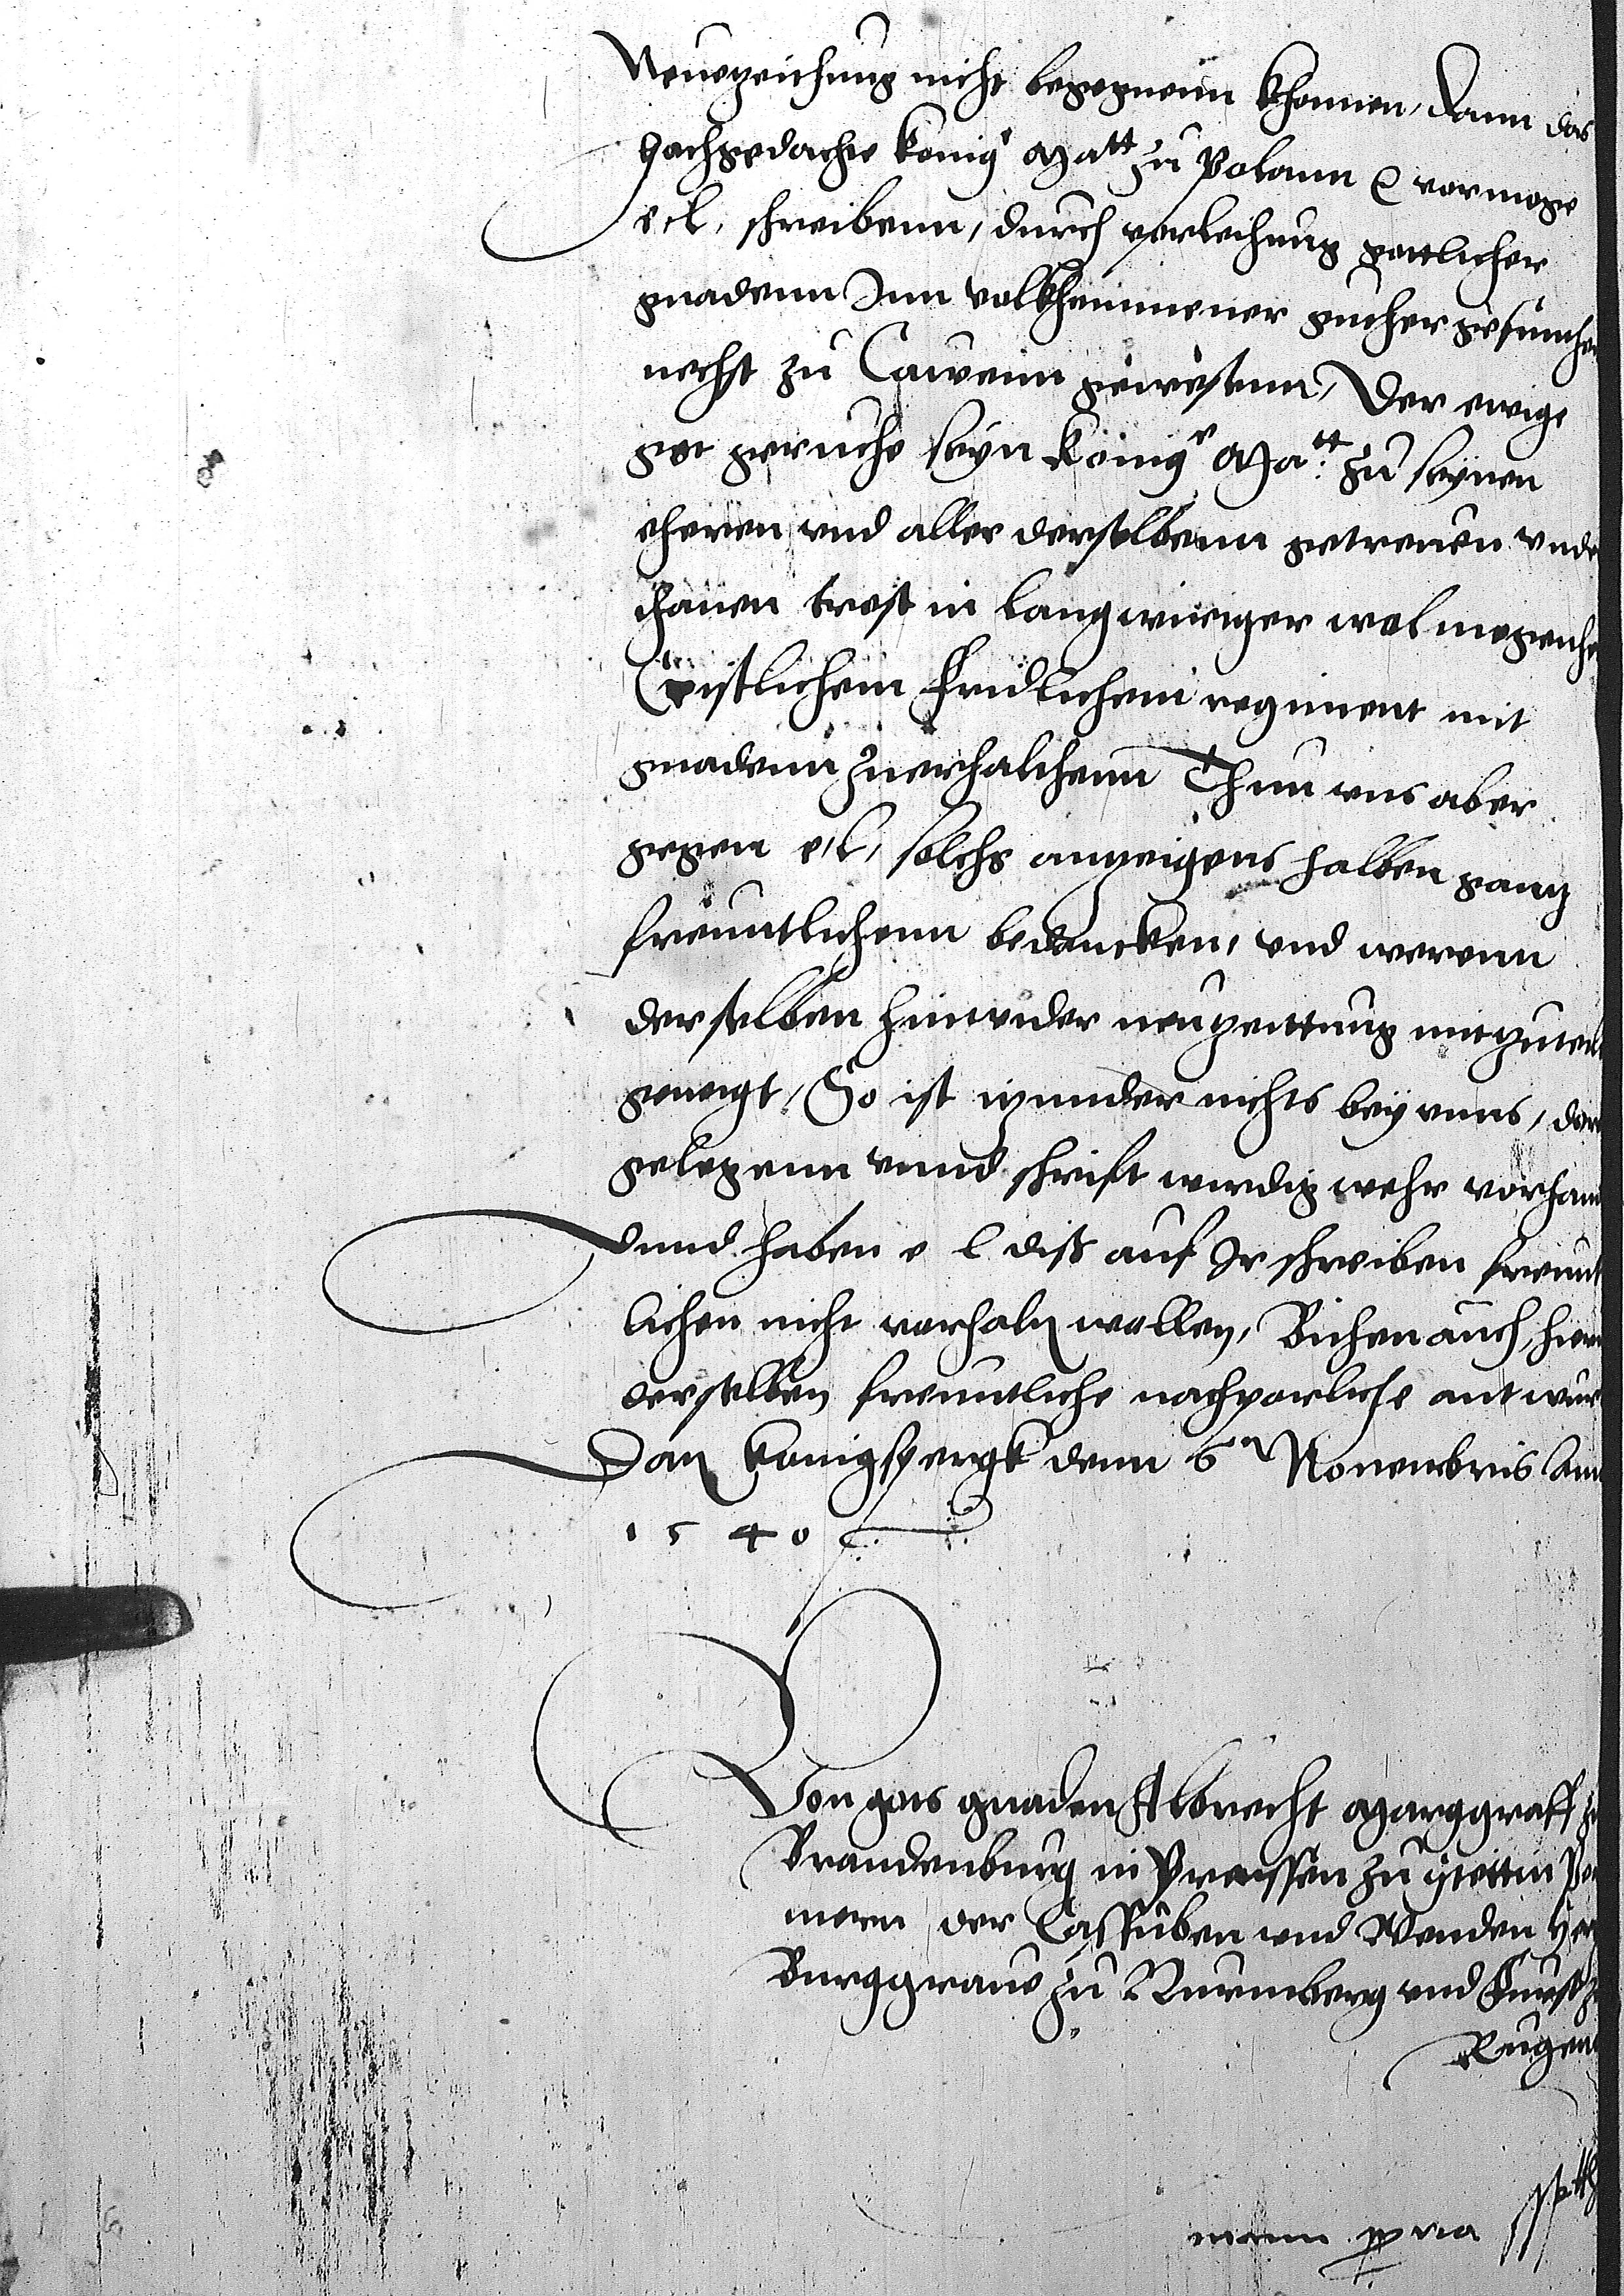 Neuezeithung nicht begegnenn khonnen, dann das
hochgedachte konig Matt zu Polann ꝛc vormoge
e. l. schreibenn, durch vorleihung gottlicher
gnadenn Inn volkhommener guther gesunthe
nechst zu Cawenn gewesenn, Der ewige
got geruche seyn konige Matt: zu seynen
eheren vnd aller derselbenn getreuen vnde
thanen trost in langwiriger wolmogenhe
Cristlichem Fridlichem regiment mit
gnadenn zuerhalthenn Thun vns aber
gegen e. l. solchs anzeigens halben gantz
freuntlichenn bedancken, vnd werenn
derselben hinwider neuzeittung mitzuteil
geneigt, So ist itzunder nichts bey vnns, dar
gelegenn vnnd schrift wirdig wehr vorhan
Vnnd haben e l diß auf Ir schreiben freunt
lichen nicht verhaln wollen, Bithen auch hier
derselben freuntliche nachparliche antwur
Dat Konigspergk denn 6n Nouembris Ann
1540
Von gots gnaden Albrecht Marggraff zu
Brandenburg in Preussen zu Stettin Po
mern der Cassuben vnd Wenden Her
Burggraue zu Nurmberg vnd Furst zu
Rugenn
manu ꝓpria sst